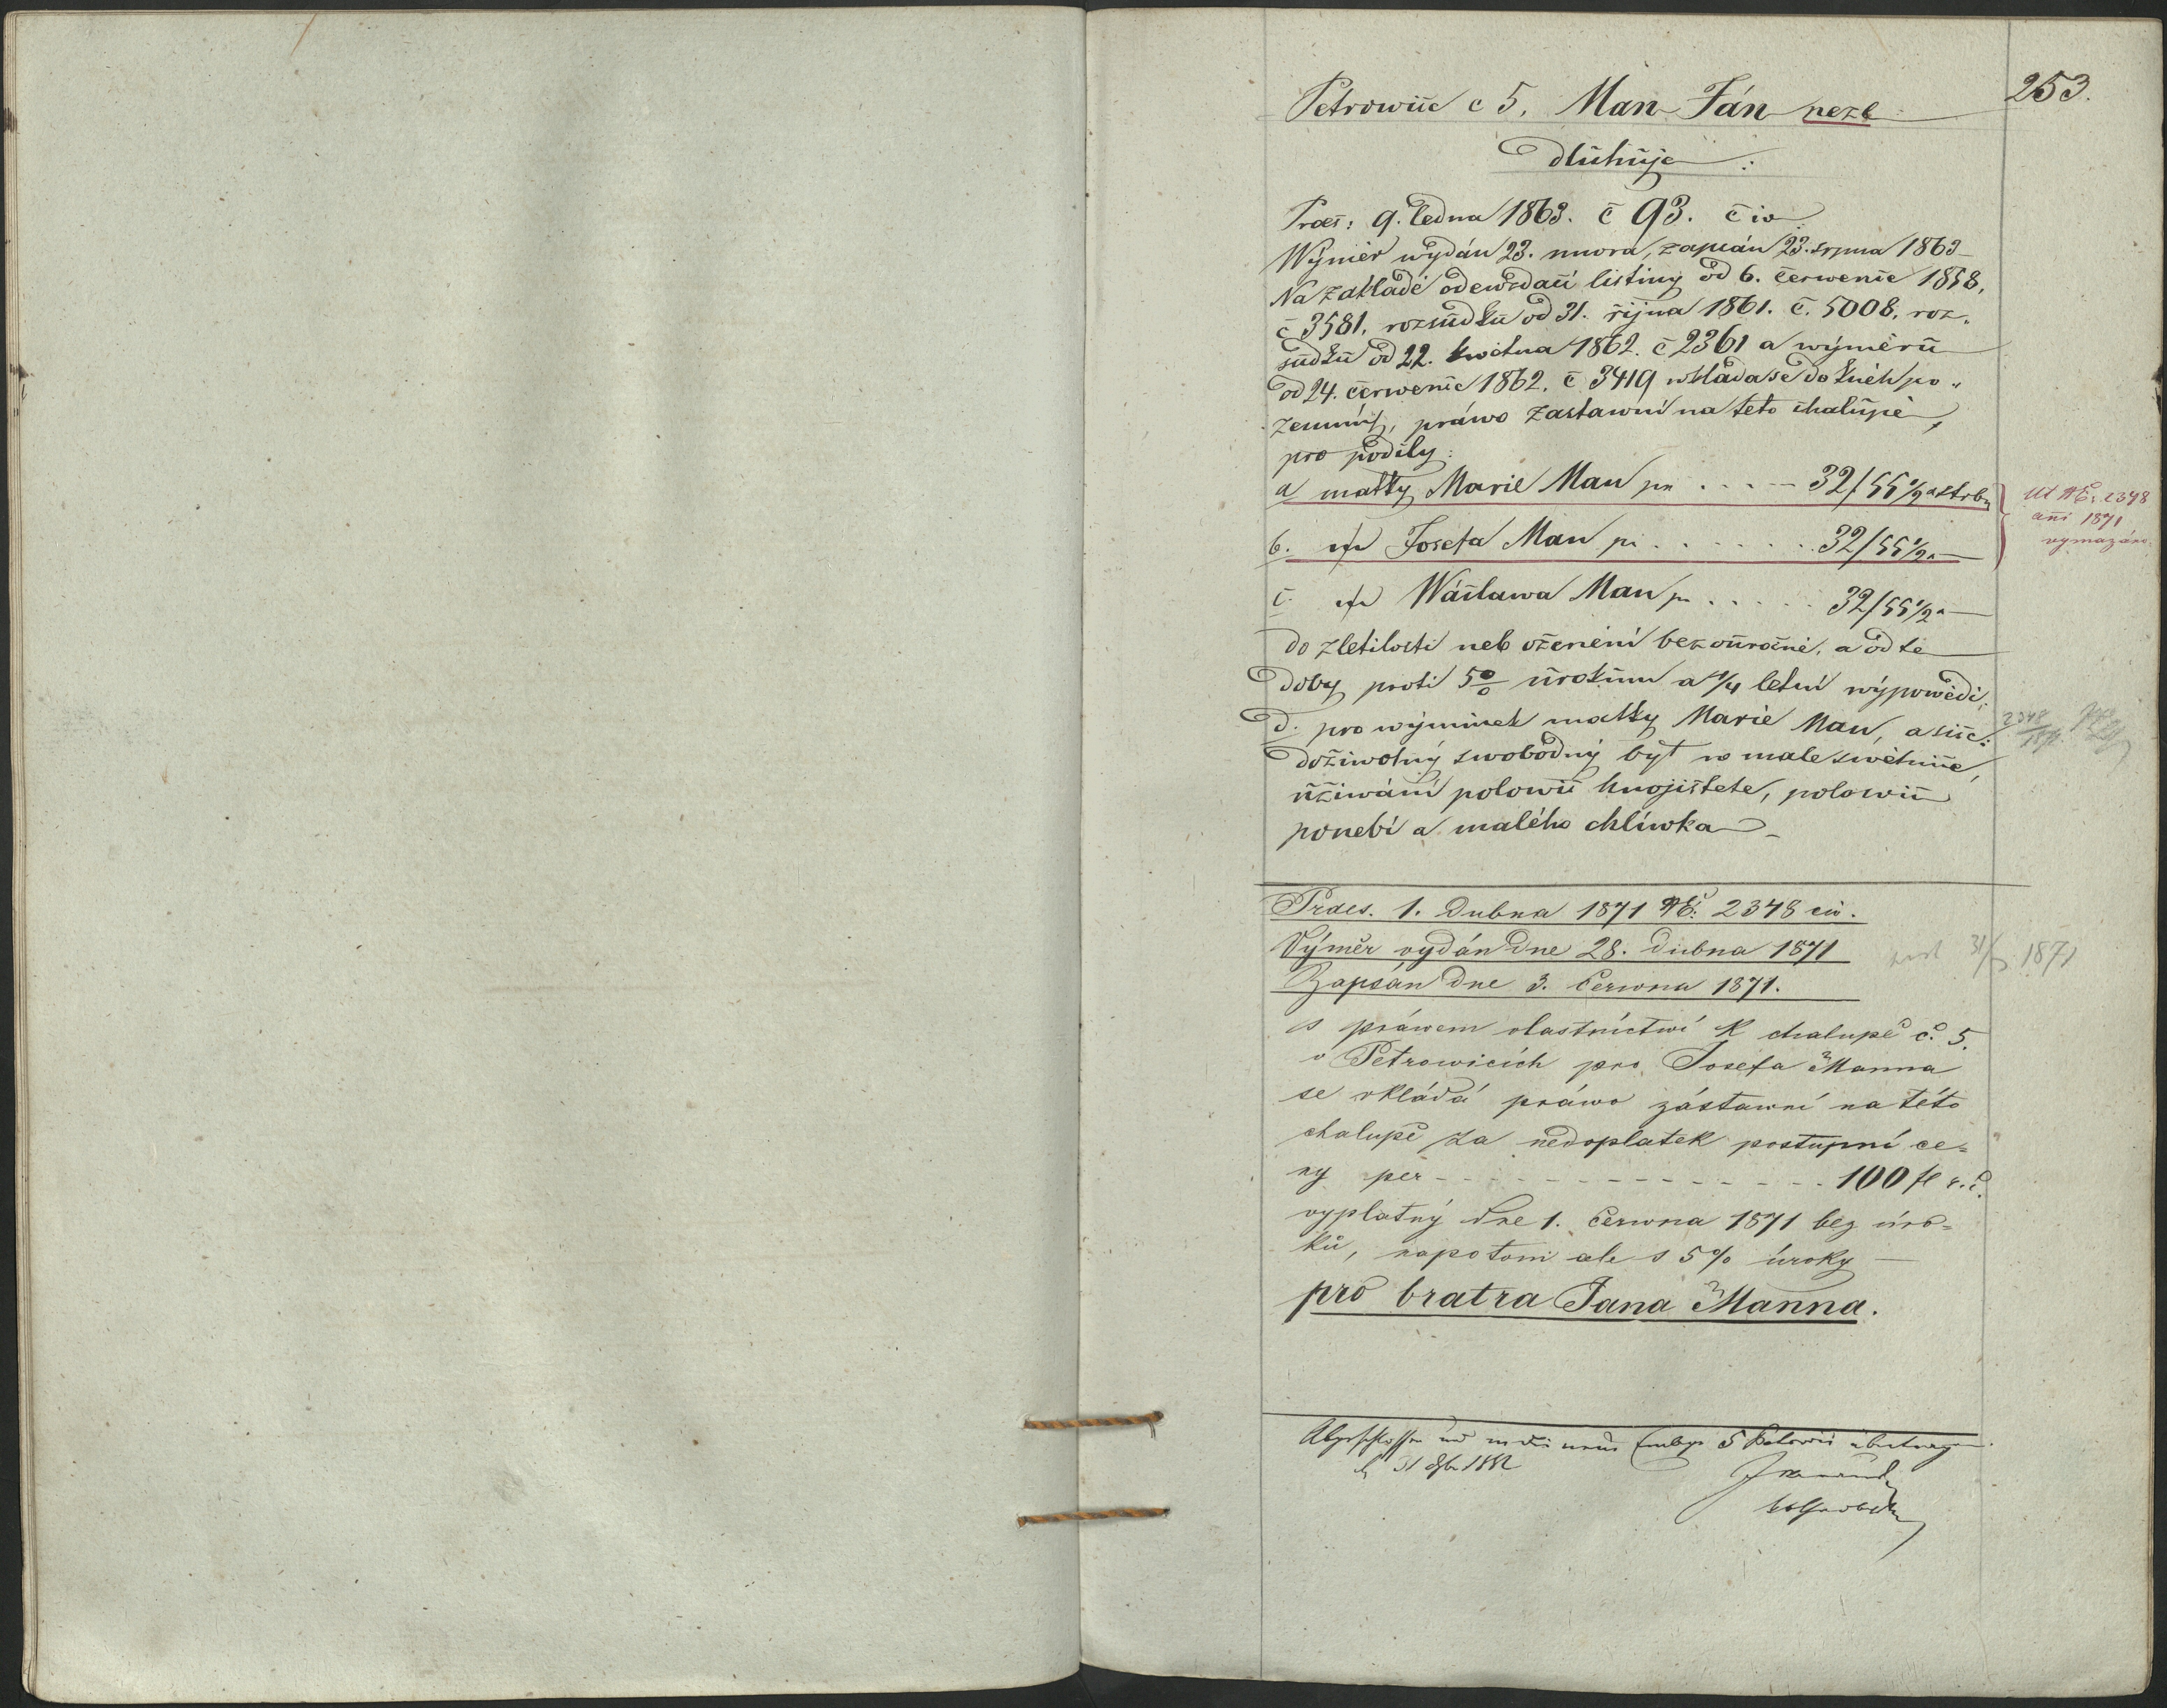 253.
Petrowiic c 5. Man Ján nezl
dluhuje:
Praes: 9. ledna 1863. č 93. čiv
Wýměr wydán 23. unora, zapsán 23. srpna 1863
Na základě odewzdací listiny od 6. čerwenic 1858,
č 3581, rozsudku od 31. řijna 1861. č. 5008, roz„
sudku od 22. kwětna 1862. č 2361 a wýměrů
od 24. čerwenic 1862. č 3419 wkládá se do knéh po„
zemních, práwo zástawní na této chalupě,
pro podíly:
a matky Marie Man pr ..... 32/55 1/2
b. Josefa Man pr ....... 32/55 1/2
c. Wáclawa Man pr ..... 32/55 1/2
Ut N E: 2348
ani 1871
vymazáno
do zletilosti neb oženění bezouročně, a od té
doby proti 5% úrokům a 1/4 letní wýpowědi;
d. pro wýminek matky Marie Man, a siic:
2348
1871
doživotný swobodný byt w male swětnice,
užiwání polowic hnojištete, polowic
ponebí a malého chlíwka
Praes. 1. Dubna 1871 NE: 2348 civ.
Výměr vydán dne 28. dubna 1871
Zapsán dne 3. Června 1871.
31/ 1871
S práwem vlastnictwí k chalupě č. 5.
v Petrowicích pro Josefa Manna
se vkládá práwo zástawní na této
chalupě za nedoplatek postupní ce=
ny per - - - - - - 100 fl r. č.
vyplatný dne 1. června 1871 bez úro=
ků, napotom ale s 5% úroky —
pro bratra Jana Manna.
Abgeschlossen und in die neue Einlage 5 Petrowic übertragen.
31 1882